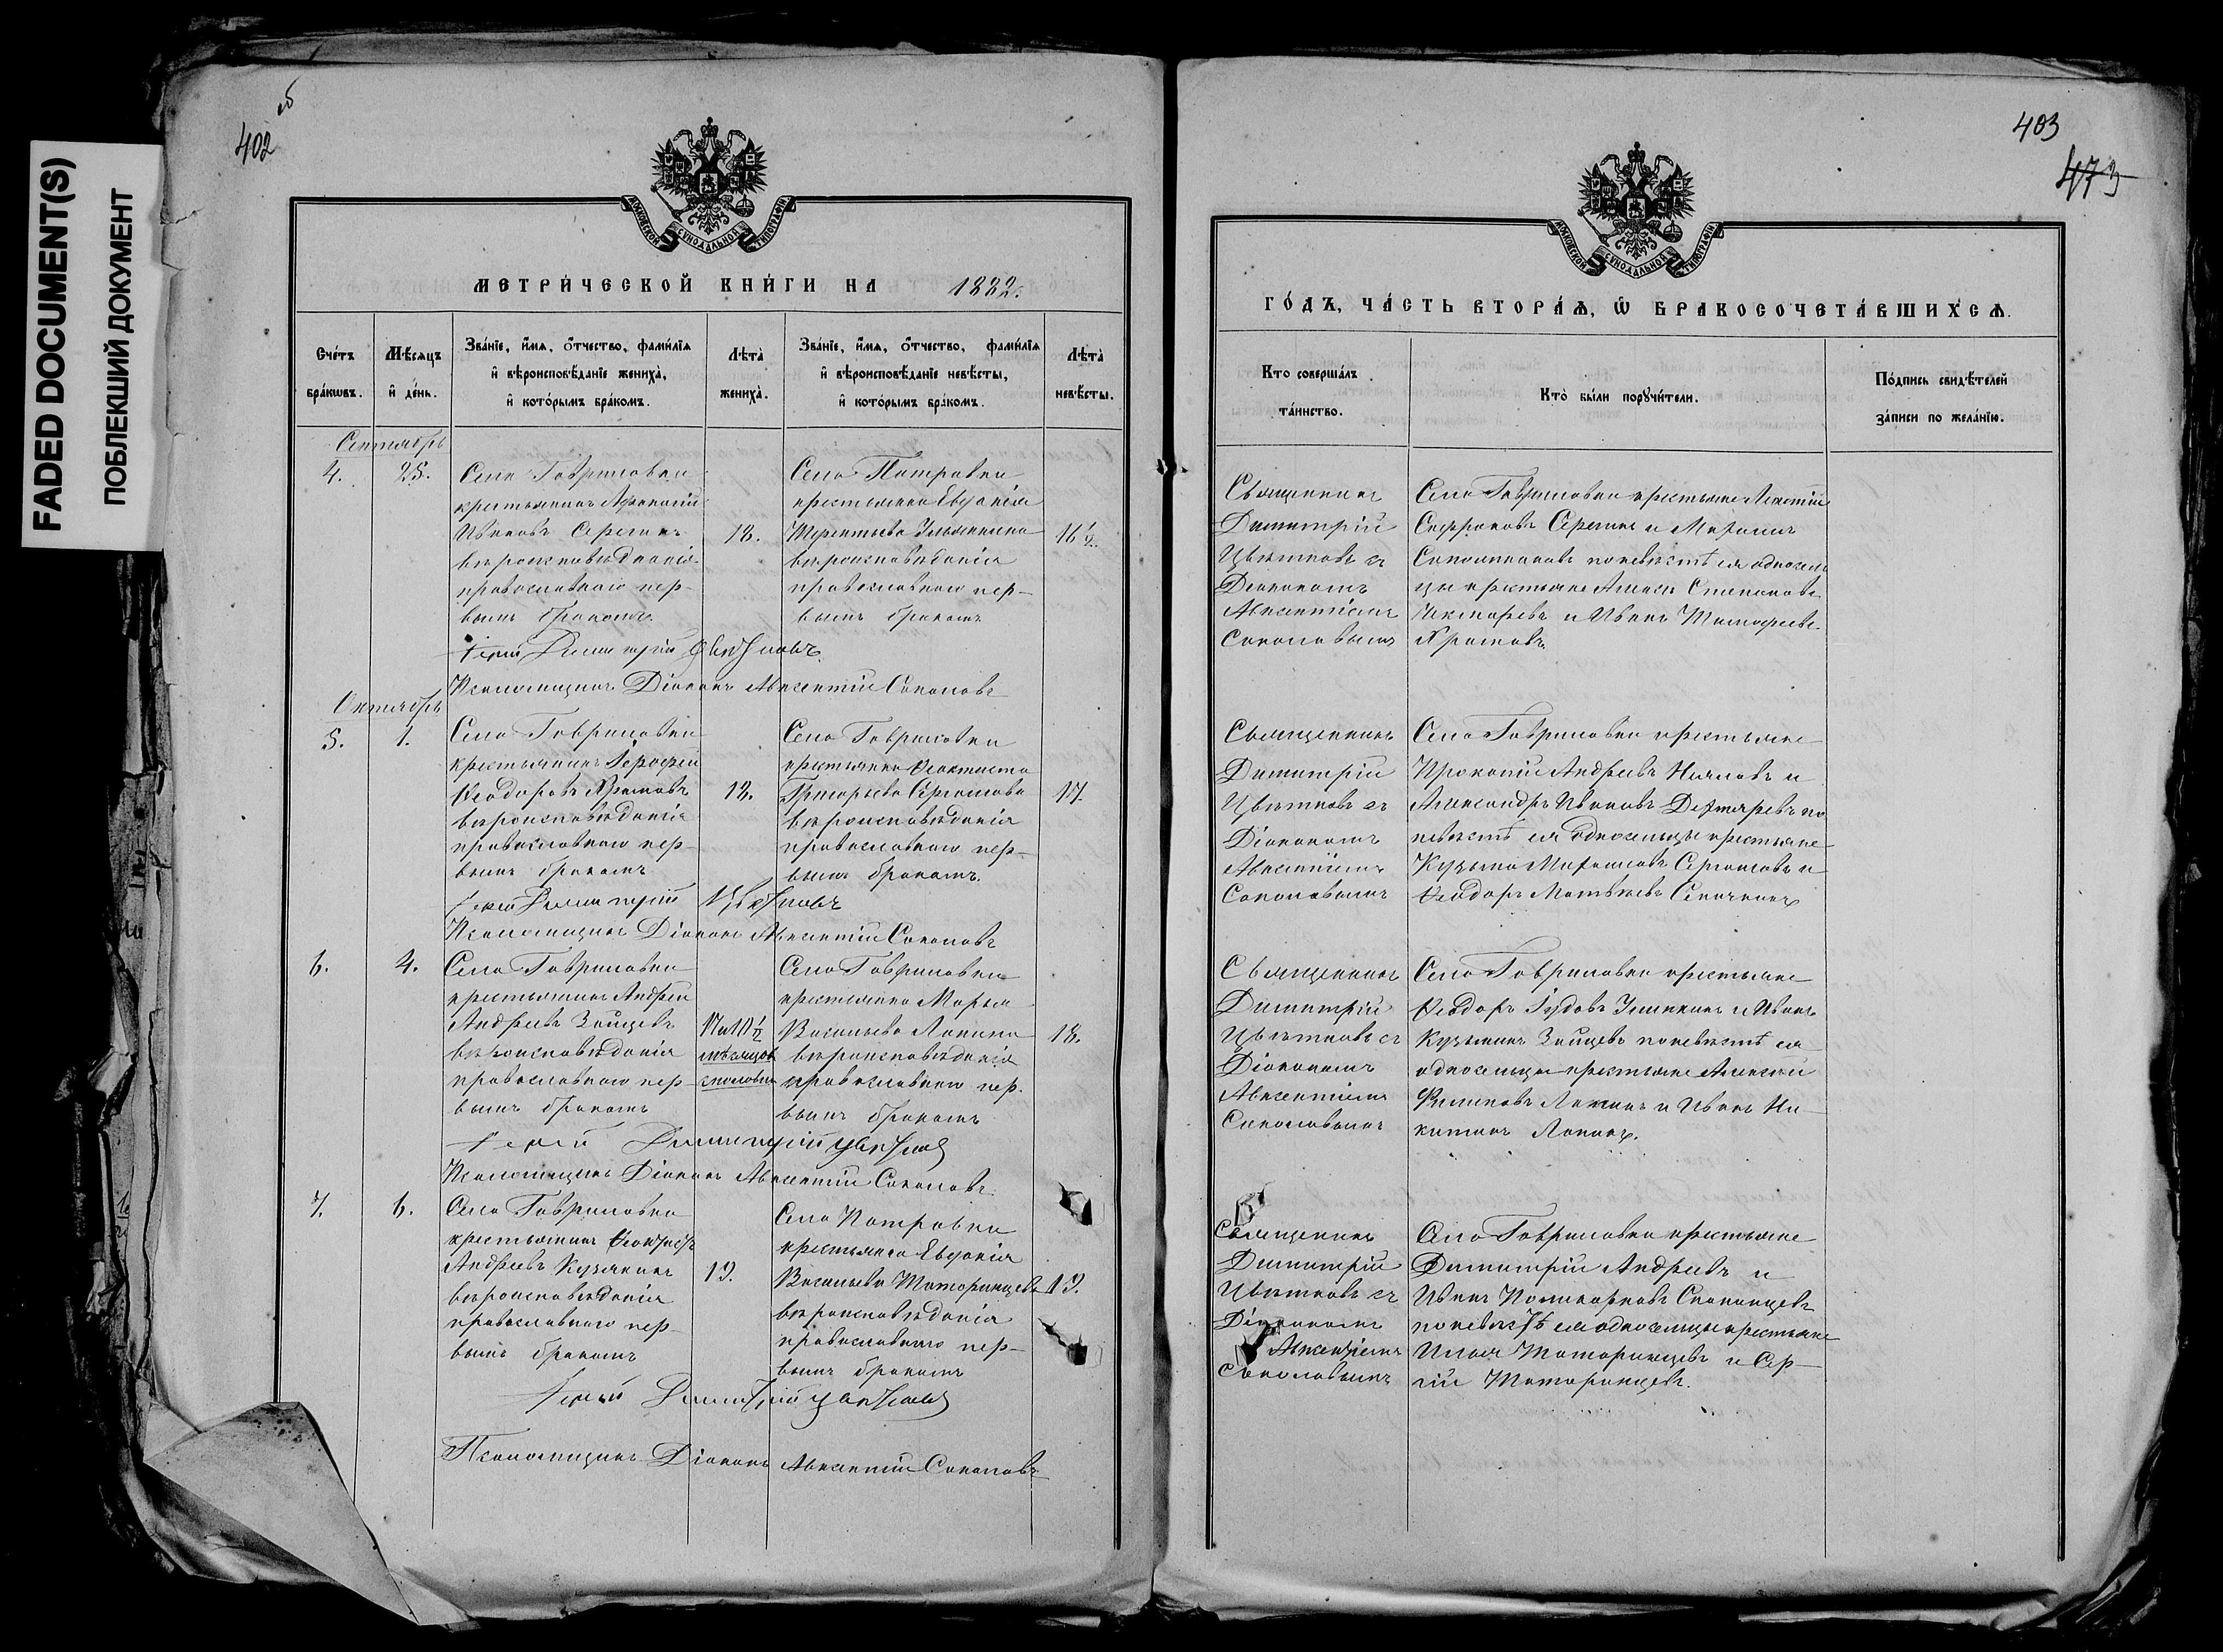 FADED DOCUMENT(S)
ПОБЛЕКШИЙ ДОКУМЕНТ
402
об
403
473
МОСКОВСКОЙ СУНОДАЛЬНОЙ ТИПОГРАФІИ
МЕТРИ́ЧЕСКОЙ КНИ́ГИ НА 1882.
Сче́тъ бра́кωвъ.
Мѣ́сяцъ и҆ де́нь.
Зва́нїе, и҆́мѧ, ѻ҆́тчество, фами́лїѧ
и҆ вѣроисповѣ́данїе жениха̀,
и҆ кото́рымъ бра́комъ.
Лѣта̀ жениха̀.
Зва́нїе, и҆́мѧ, ѻ҆́тчество, фами́лїѧ
и҆ вѣроисповѣ́данїе невѣ́сты,
и҆ кото́рымъ бра́комъ.
Лѣта̀ невѣ́сты.
Сентябрь
4. 25.
Села Гавриловки
крестьянинъ
Ивановъ Серегинъ
вѣроисповѣданія
православнаго пер-
вымъ бракомъ.
18.
Села Петровки
крестьянка Евдокія
Терентьева
вѣроисповѣданія
православнаго пер-
вымъ бракомъ
16 ½.
Іерей Димитрій Цвѣтковъ.
Псаломщикъ Діаконъ Авксентій Соколовъ
Октябрь
5. 1.
Села Гавриловки
крестьянинъ Іерофей
Ѳеодоровъ Хромовъ
вѣроисповѣданія
православнаго пер-
вымъ бракомъ
18.
Села Гавриловки
крестьянка Ѳеоктиста
Григорьева
вѣроисповѣданія
православнаго пер-
вымъ бракомъ.
17.
Іерей Димитрій Цвѣтковъ
Псаломщикъ Діаконъ Авксентій Соколовъ
6. 4.
Села Гавриловки
крестьянинъ Андрей
Андреевъ Зайцевъ
вѣроисповѣданія
православнаго пер-
вымъ бракомъ
17 и 10 ½
мѣсяцовъ
съ половин.
Села Гавриловки
крестьянка Марья
Васильева Лапина
вѣроисповѣданія
православнаго пер-
вымъ бракомъ
18.
Іерей Димитрій Цвѣтковъ
Псаломщикъ Діаконъ Авксентій Соколовъ.
7. 6.
Села Гавриловки
крестьянинъ Ѳеоктистъ
Андреевъ Кузякинъ
вѣроисповѣданія
православнаго пер-
вымъ бракомъ
19.
Села Петровки
крестьянка Евдокія
Васильева Татаринцева
вѣроисповѣданія
православнаго пер-
вымъ бракомъ
19.
Іерей Димитрій Цвѣтковъ
Псаломщикъ Діаконъ Авксентій Соколовъ
ГО́ДЪ, ЧА́СТЬ ВТОРА́Ѧ, Ѡ҆ БРАКОСОЧЕТА́ВШИХСѦ.
Кто соверша́лъ та́инство.
Кто̀ бы́ли порꙋчи́тели.
По́дпись свидѣ́телей за́писи по жела́нїю.
Священникъ
Димитрій
Цвѣтковъ съ
Діакономъ
Авксентіемъ
Соколовымъ
Села Гавриловки крестьяне
Софроновъ Серегинъ и
по невѣстѣ ея односель
цы крестьяне Алексѣй Степановъ
и Иванъ Тимофеевъ
Хромовъ.
Священникъ
Димитрій
Цвѣтковъ съ
Діакономъ
Авксентіемъ
Соколовымъ
Села Гавриловки крестьяне
Прокопій Андреевъ и
Александръ Ивановъ Дехтяревъ по
невѣстѣ ея односельцы крестьяне
Кузьма и
Ѳеодоръ Матвѣевъ
Священникъ
Димитрій
Цвѣтковъ съ
Діакономъ
Авксентіемъ
Соколовымъ
Села Гавриловки крестьяне
Ѳеодоръ и Иванъ
Кузьминъ Зайцевъ по невѣстѣ ея
односельцы крестьяне Алексѣй
Филиповъ Лапинъ и Иванъ Ни-
китинъ Лапинъ.
Священникъ
Димитрій
Цвѣтковъ съ
Діакономъ
Авксентіемъ
Соколовымъ
Села Гавриловки крестьяне
Димитрій Андреевъ и
Иванъ Поликарповъ
по невѣстѣ ея односельцы крестьяне
Илья Татаринцевъ и Сер-
гій Татаринцевъ.